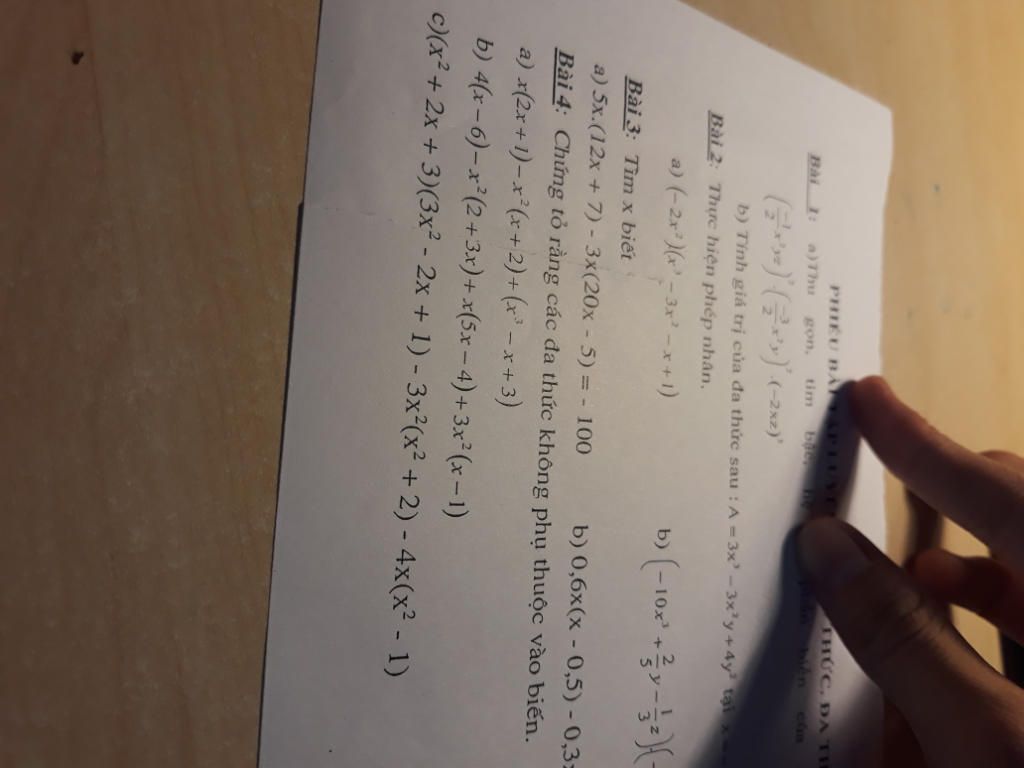 PHIẾU BÀI TẬP LUYỆ THỨC, ĐA TH
Bài 1: a)Thu gọn, tìm bậc, của
(-1/2 x³yz)³.(-3/2 x²y)².(-2xz)³
b) Tính giá trị của đa thức sau : A = 3x³ - 3x²y + 4y² tại x =
Bài 2: Thực hiện phép nhân.
a) (-2x²)(x³ - 3x² - x + 1) b) (-10x³ + 2/5 y - 1/3 z)(-
Bài 3: Tìm x biết
a) 5x.(12x + 7) - 3x(20x - 5) = - 100 b) 0,6x(x - 0,5) - 0,3x
Bài 4: Chứng tỏ rằng các đa thức không phụ thuộc vào biến.
a) x(2x+1) - x²(x+2) + (x³ - x + 3)
b) 4(x - 6) - x²(2 + 3x) + x(5x - 4) + 3x²(x - 1)
c)(x² + 2x + 3)(3x² - 2x + 1) - 3x²(x² + 2) - 4x(x² - 1)